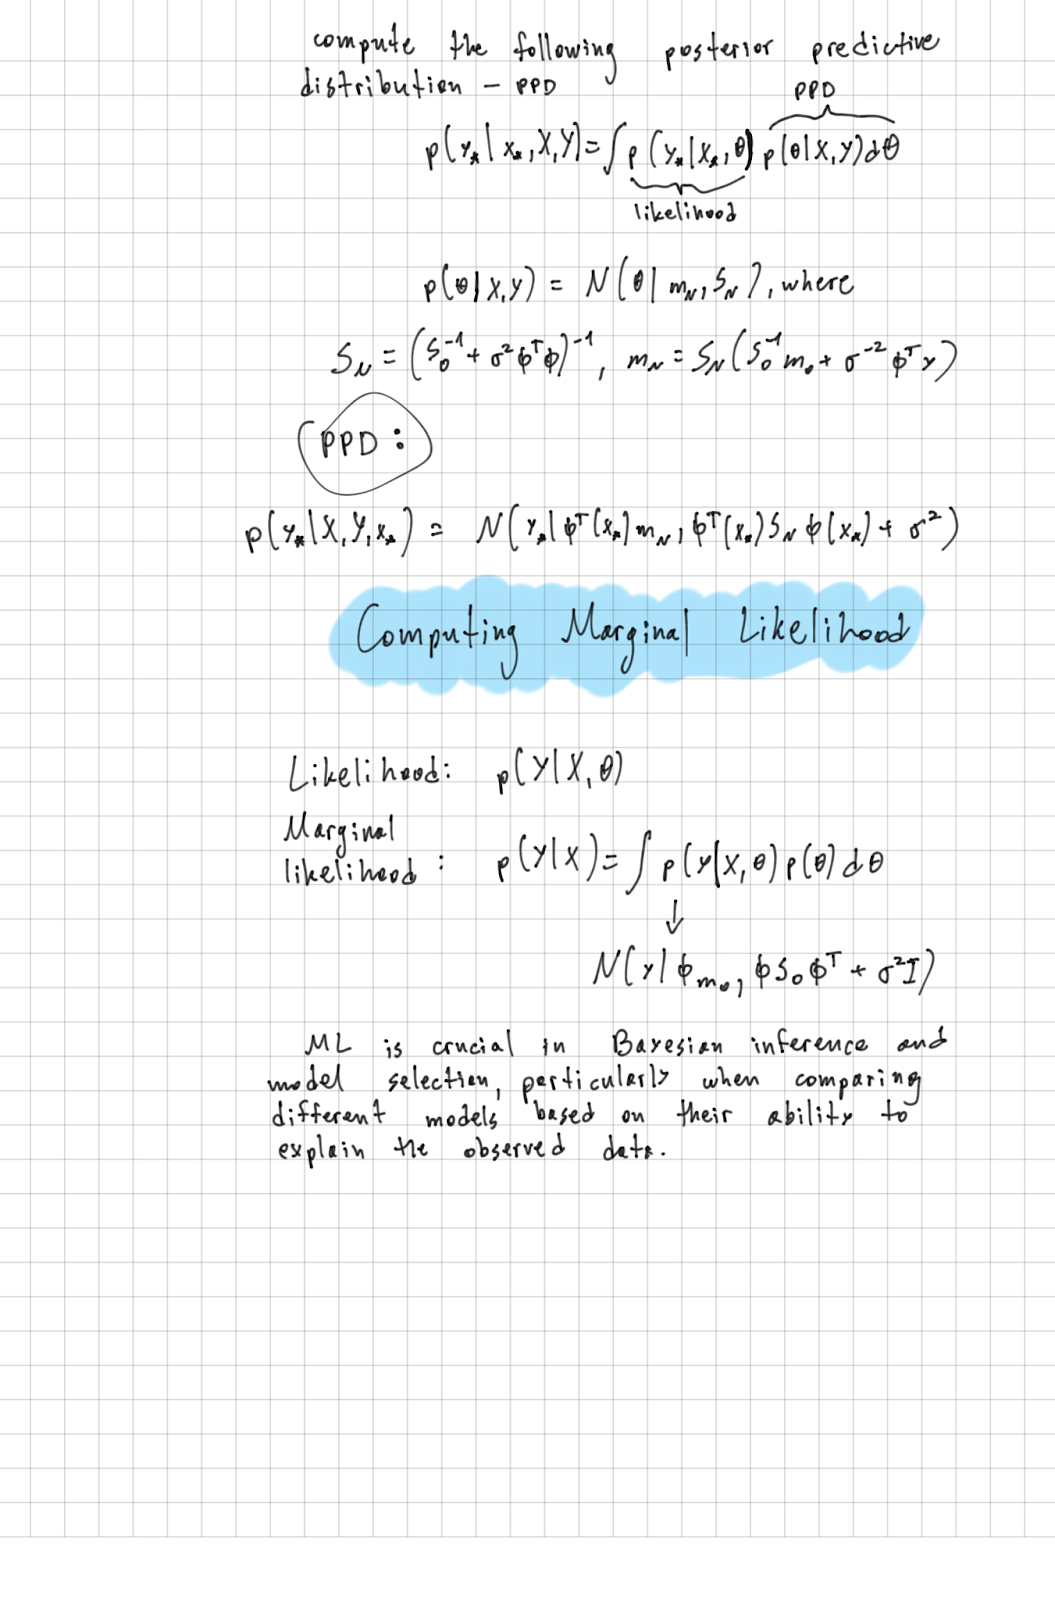 compute the following posterior predictive
distribution – PPD
PPD
p(y⁎ | x⁎, X, Y) = ∫ p(y⁎ | x⁎, θ) p(θ | X, Y) dθ
likelihood
p(θ | X, Y) = N(θ | m_N, S_N), where
S_N = (S₀⁻¹ + σ² ϕᵀϕ)⁻¹, m_N = S_N (S₀⁻¹ m₀ + σ⁻² ϕᵀ y)
PPD:
p(y⁎ | X, Y, x⁎) = N(y⁎ | ϕᵀ(x⁎) m_N, ϕᵀ(x⁎) S_N ϕ(x⁎) + σ²)
Computing Marginal Likelihood
Likelihood: p(Y | X, θ)
Marginal
likelihood: p(Y | X) = ∫ p(y | X, θ) p(θ) dθ
↓
N(y | ϕ m₀, ϕ S₀ ϕᵀ + σ² I)
ML is crucial in Bayesian inference and
model selection, particularly when comparing
different models based on their ability to
explain the observed data.